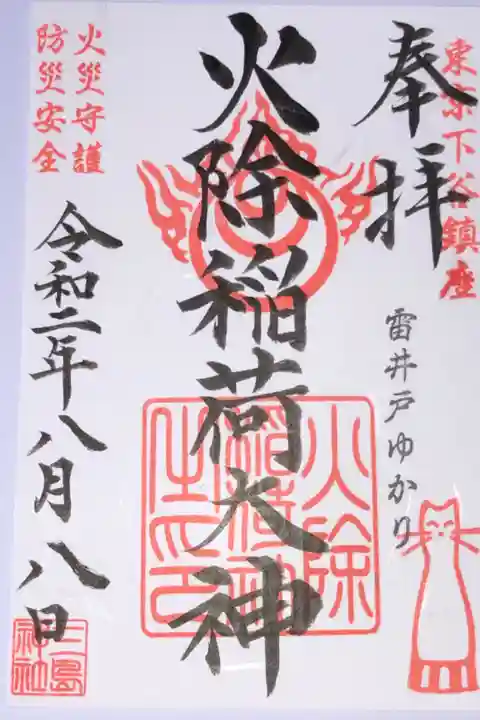 東京下谷鎮座
奉拝
雷井戸ゆかり
火除稲荷大神
火除
稲荷神
社印
火災守護
防災安全
令和二年八月八日
三島
神社